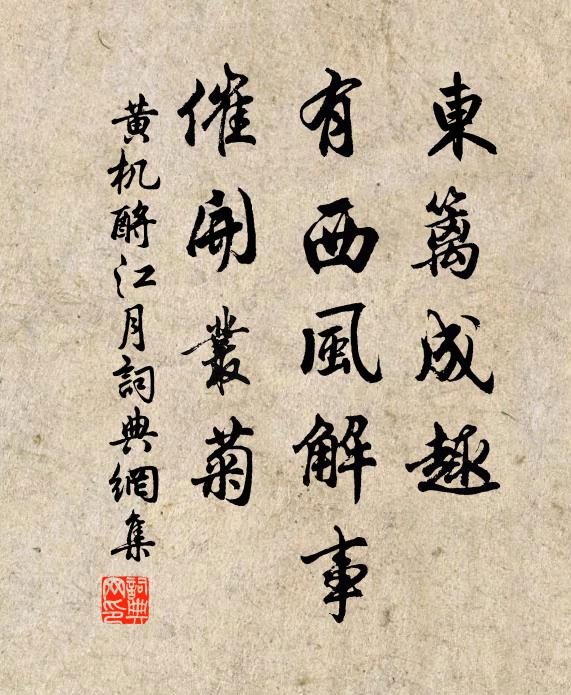 東籬成趣
有西風解事
催開叢菊
黄机酹江月詞典網集
詞典網印